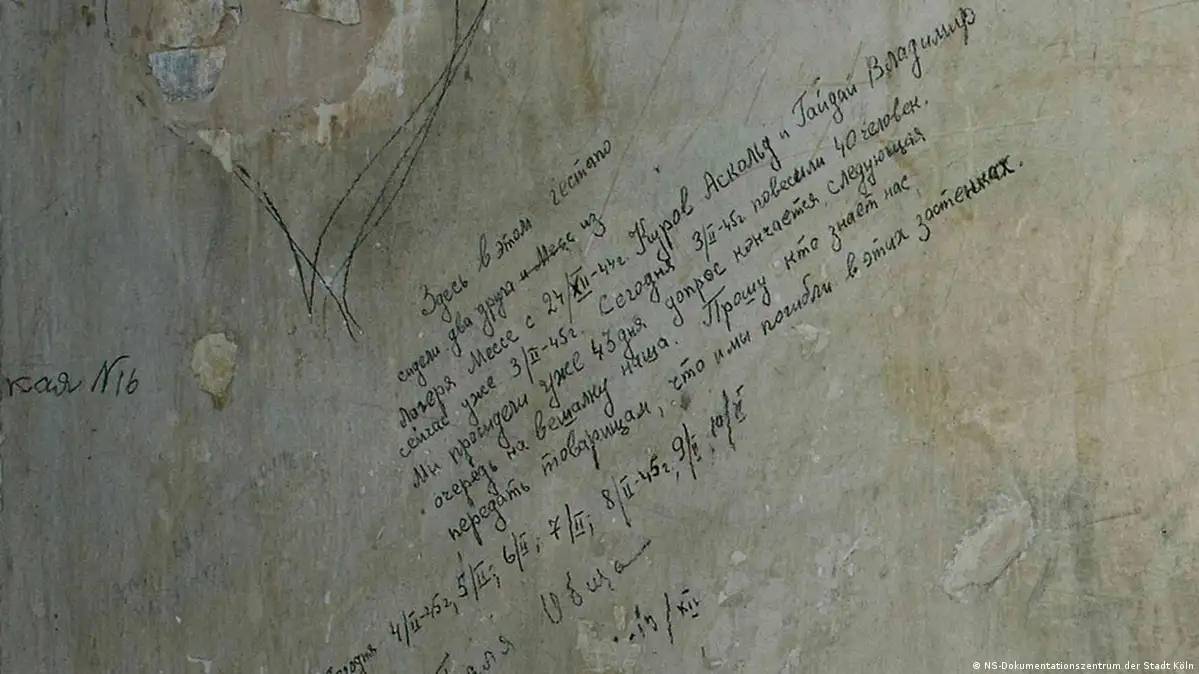 Здесь в этом гестапо
сидели два друга и Месс из
лагеря Мессе с 24/XII-44г. Куров Аскольд и Гайдай Владимир
сейчас уже 3/II-45г. Сегодня 3/II-45г повесили 40 человек.
Ми просидели уже 43 дня допрос кончается, следующая
очередь на вешалку наша. Прошу кто знает нас,
передать товарищам, что и мы погибли в этих застенках.
Сегодня 4/II-45г, 5/II; 6/II; 7/II; 8/II-45г, 9/II, 10/II
кая N16
/XII
© NS-Dokumentationszentrum der Stadt Köln